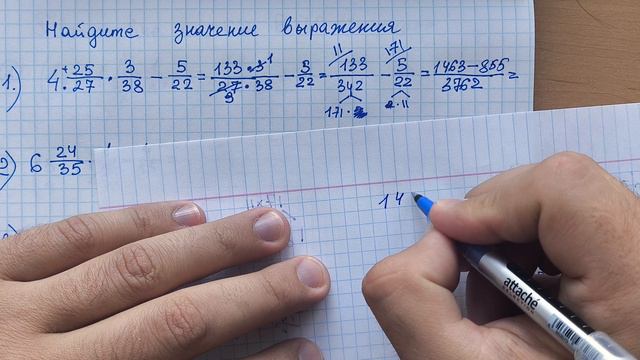 Найдите значение выражения
1.) 4 25/27 · 3/38 − 5/22 = 133·3/27·38 − 5/22 = 133/342 − 5/22 = 1463−855/3762 =
11 171
9 1
171· 2·11
2) 6 24/35 ·
14
attaché